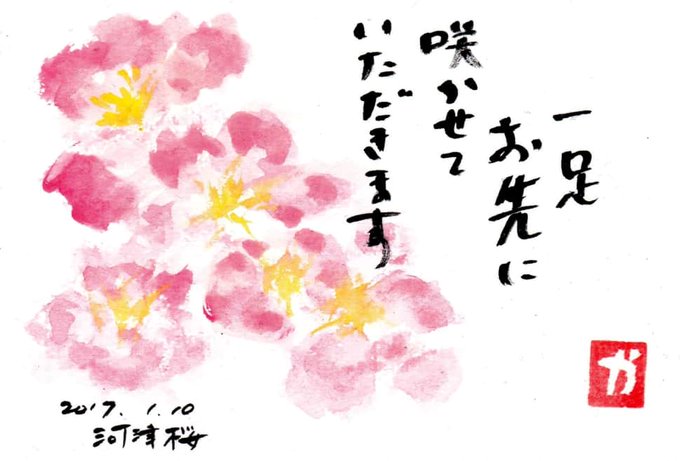 一足
お先に
咲かせて
いただきます
か
2017. 1.10
河津桜